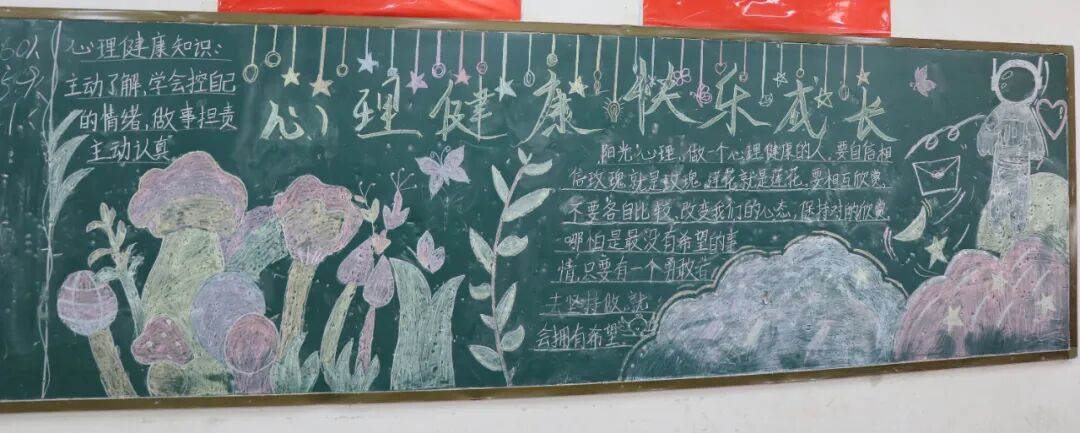 心理健康知识:
主动了解,学会控自己
的情绪,做事担责
主动认真
心理健康 快乐成长
阳光心理,做一个心理健康的人,要自信相
信玫瑰就是玫瑰,莲花就是莲花,要相互欣赏,
不要各自比较,改变我们的心态,保持对的欣赏
哪怕是最没有希望的事
情,只要有一个勇敢者
去坚持做,就
会拥有希望。